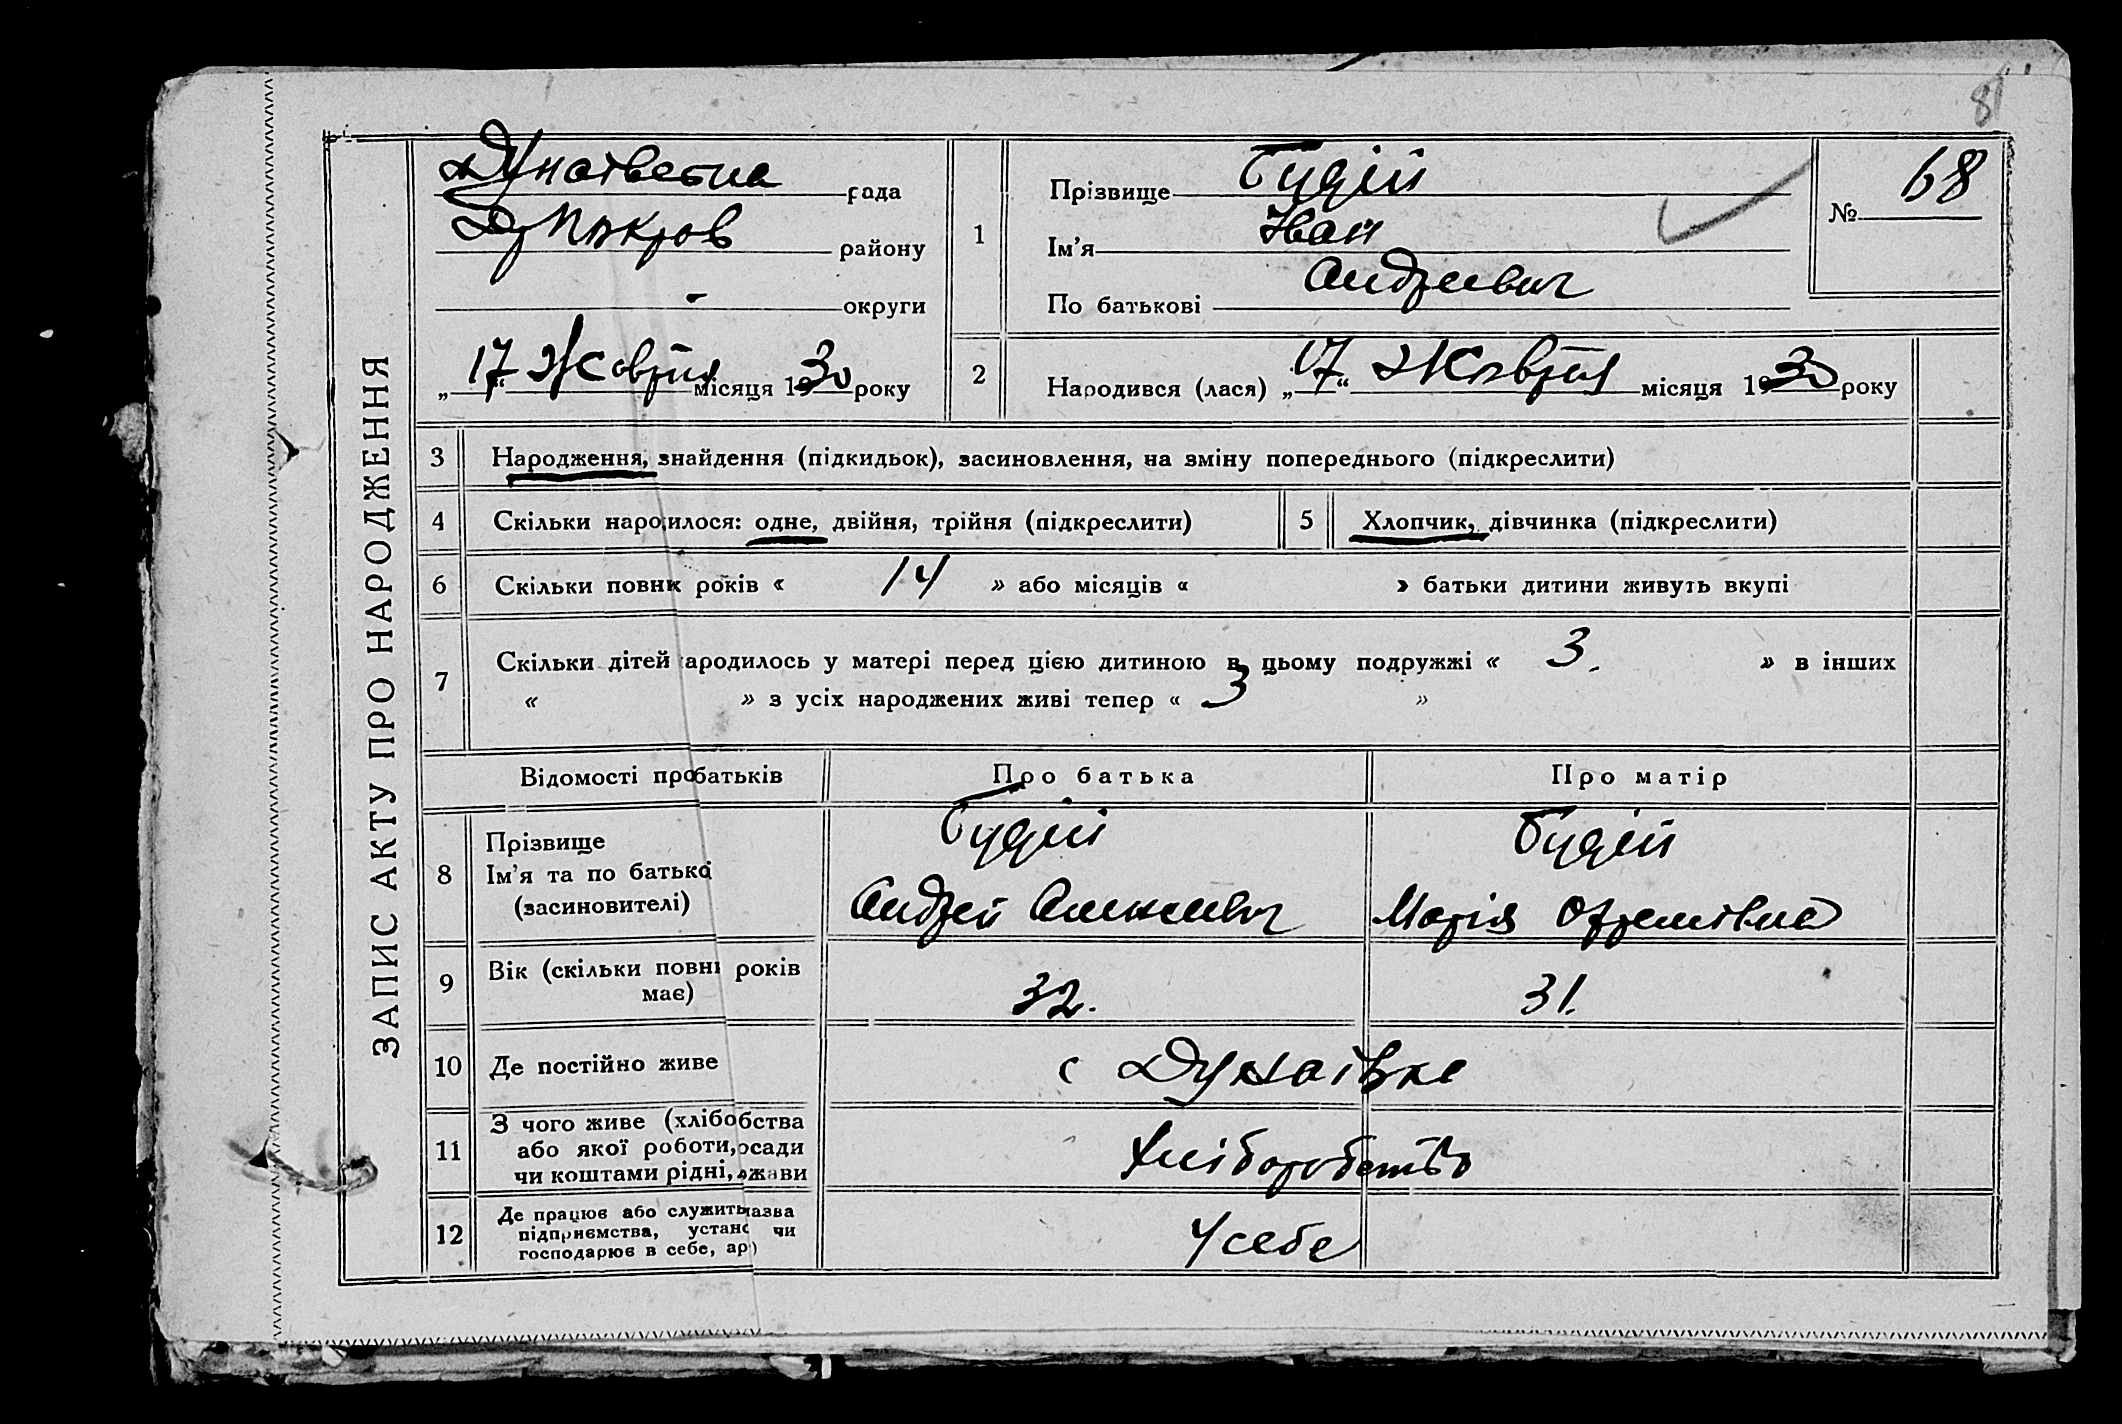 81
ЗАПИС АКТУ ПРО НАРОДЖЕННЯ
рада
району
округи
„17“ Жовтня місяця 1930 року
1
Прізвище Будій
Ім’я Іван
По батькові Андреевич
№ 68
2
Народився (лася) „17“ Жовтня місяця 1930 року
3 Народження, знайдення (підкидьок), засиновлення, на зміну попереднього (підкреслити)
4 Скільки народилося: одне, двійня, трійня (підкреслити)
5 Хлопчик, дівчинка (підкреслити)
6 Скільки повних років « 14 » або місяців « » батьки дитини живуть вкупі
7 Скільки дітей народилось у матері перед цією дитиною в цьому подружжі « 3. » в інших
« » з усіх народжених живі тепер « 3 »
Відомості про батьків Про батька Про матір
8 Прізвище
Ім’я та по батькові
(засиновителі)
Будій
Андрей Алексеевич
Будій
Марія
9 Вік (скільки повних років
має)
32. 31.
10 Де постійно живе
с Дунаівке
11 З чого живе (хлібобства
або якої роботи, посади
чи коштами рідні, держави
Хліборобство
12 Де працює або служить назва
підприємства, устан чи
господарює в себе, ар)
У себе